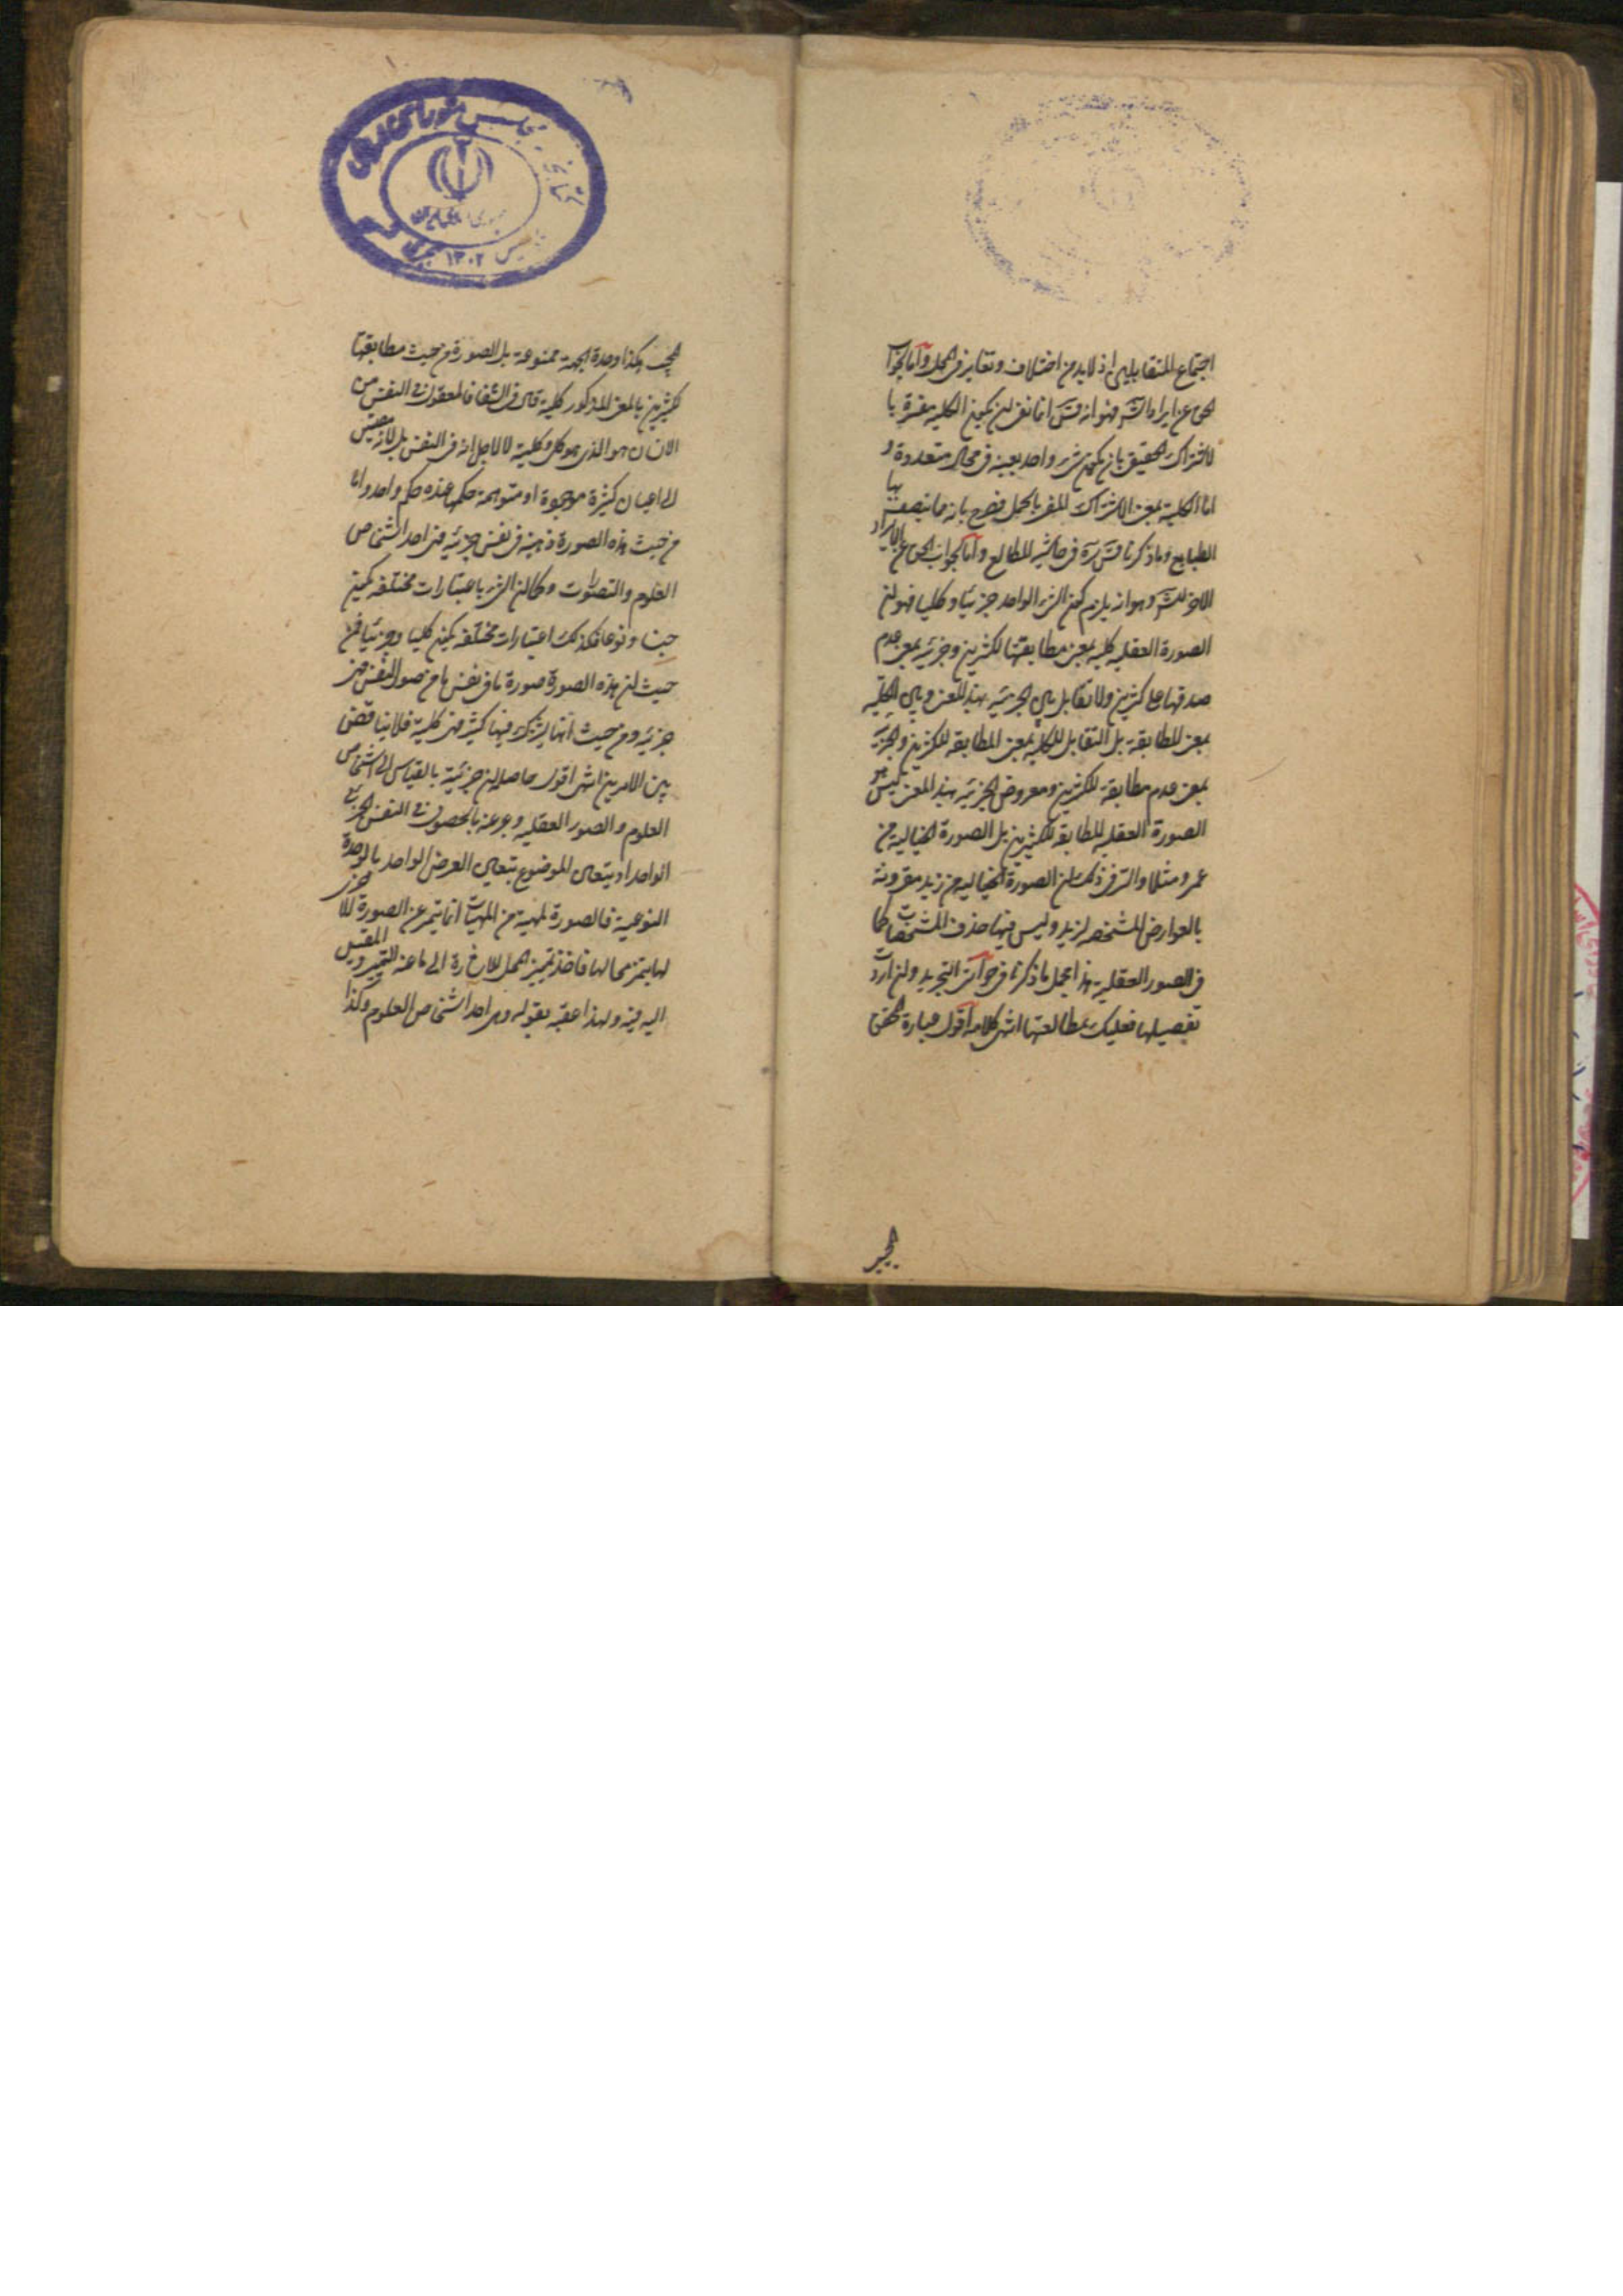 اجتماع المتقابلين اذ لا بد من اختلاف وتغاير فى المحل واما الجواب
الحق عن ايراد الش فهو انه قس انما نفى ان يكون الكلية مفسرة با
لاشتراك الحقيقى بان يكون شىء واحد بعينه فى محال متعددة و
اما الكلية بمعنى الاشتراك المفسر بالحمل فصرح بانه مما يتصف بها
الطبايع وما ذكرنا قس سره فى حاشية المطالع واما الجواب الحق عن الايراد
الاخر للش وهو انه يلزم كون الشىء الواحد جزئيا وكليا فهو ان
الصورة العقليه كليه بمعنى مطابقتها لكثيرين وجزئيه بمعنى عدم
صدقها على كثيرين ولا تقابل بين الجزئيه بهذا المعنى وبين الكليه
بمعنى المطابقة بل التقابل للكليه بمعنى المطابقه للكثيرين والجزئية
بمعنى عدم مطابقة للكثيرين ومعروض الجزئيه بهذا المعنى ليس هو
الصورة العقليه المطابقه للكثيرين بل الصورة الخياليه من
عمرو مثلا والسر فى ذلك ان الصورة الخياليه من زيد مقرونة
بالعوارض المشخصه لزيد وليس فيها حذف المشخصات كما
فى الصور العقلية هذا مجمل ما ذكرنا فى حواشى التجريد وان اردت
تفصيلها فعليك بمطالعتها انتهى كلامه اقول عبارة المحقق
المجيب هكذا وحدة الجهة ممنوعة بل الصورة من حيث مطابقتها
لكثيرين بالمعنى المذكور كلية قال فى الشفا فالمعقول فى النفس من
الانسان هو الذى هو كلى وكليته لا لاجل انه فى النفس بل لانه مقيس
الى اعيان كثيرة موجودة او متوهمة حكمها عنده حكم واحد واما
من حيث هذه الصورة ذهنية فى نفس جزئيه فهى احد اشخاص
العلوم والتصورات وكما ان الشىء باعتبارات مختلفه يكون
جنسا ونوعا فكذلك اعتبارات مختلفه يكون كليا وجزئيا فمن
حيث ان هذه الصورة صورة ما فى نفس ما من صور النفس فهى
جزئيه ومن حيث انها يشترك فيها كثير فهى كلية فلا يناقض
بين الامرين انتهى اقول حاصله ان جزئية بالقياس الى اشخاص
العلوم والصور العقليه وعرضه بالحصول فى النفس الجزئى
الواحد اذ يتعين الموضوع بتعين العرض الواحد بالوحدة
النوعية فالصورة لمهية من المهيات انما يتميز عن الصورة الاخرى
لها بتميز محالها فاخذ تميز المحل للاشارة الى ما عنه التميز وبين المقيس
اليه فيه ولهذا عقبه بقوله وهى احد اشخاص العلوم وكذا